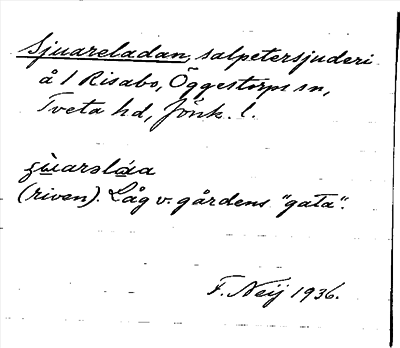 Sjuareladan, salpetersjuderi
å 1 Risabo, Öggestorps sn,
Tveta hd, Jönk. l.
ʒùarslá̱a
(riven). Låg v. gårdens "gata".
F. Neij 1936.